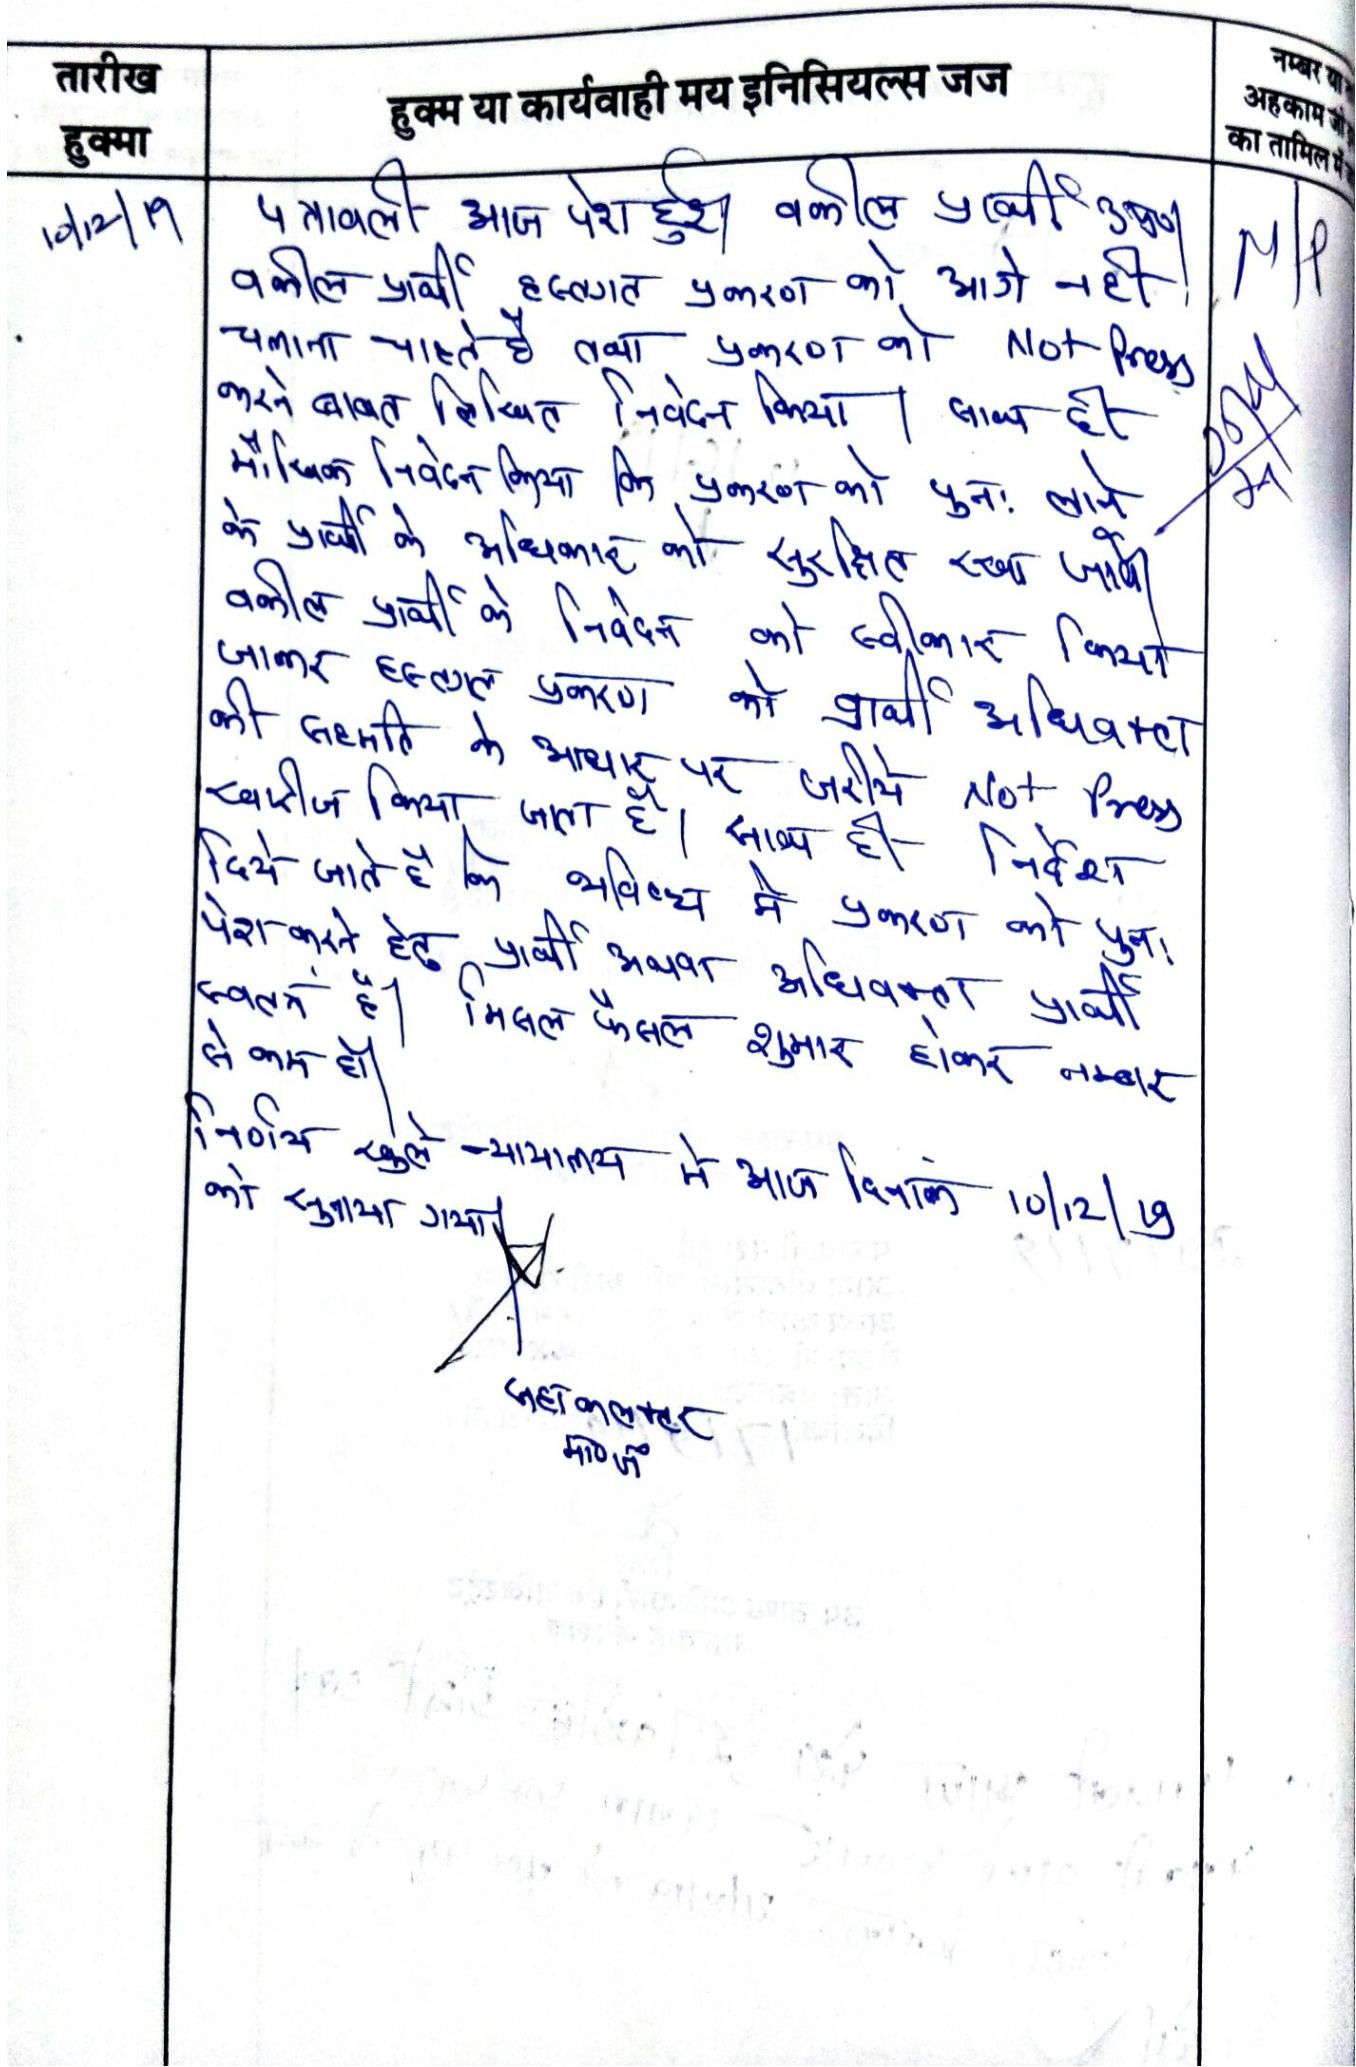 तारीख
हुक्मा
हुक्म या कार्यवाही मय इनिसियल्स जज
नम्बर
अहकाम
का तामिल में
10/12/19
पत्रावली आज पेश हुई। वकील प्रार्थी उप०।
वकील प्रार्थी हस्तगत प्रकरण को आगे नही
चलाना चाहते है तथा प्रकरण को Not Press
करने बाबत लिखित निवेदन किया। साथ ही
मौखिक निवेदन किया कि प्रकरण को पुनः लाने
के प्रार्थी के अधिकार को सुरक्षित रखा जावे।
वकील प्रार्थी के निवेदन को स्वीकार किया
जाकर हस्तगत प्रकरण को प्रार्थी अधिवक्ता
की सहमति के आधार पर जरीये Not Press
खारीज किया जाता है। साथ ही निर्देश
दिये जाते है कि भविष्य मे प्रकरण को पुनः
पेश करने हेतु प्रार्थी अथवा अधिवक्ता प्रार्थी
स्वतंत्र है। मिसल फैसल शुमार होकर नम्बर
से कम हो।
निर्णय खुले न्यायालय मे आज दिनांक 10/12/19
को सुनाया गया।
सहा कलक्टर